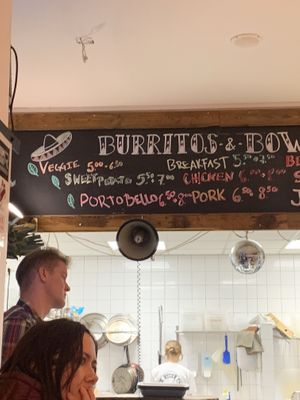 BURRITOS & BOW
VEGGIE 5.00 - 6.50 BREAKFAST 5.50 - 7.50
SWEET POTATO 5.50 - 7.50 CHICKEN 6.00 - 8.00
PORTOBELLO 6.50 - 8.50 PORK 6.50 - 8.50